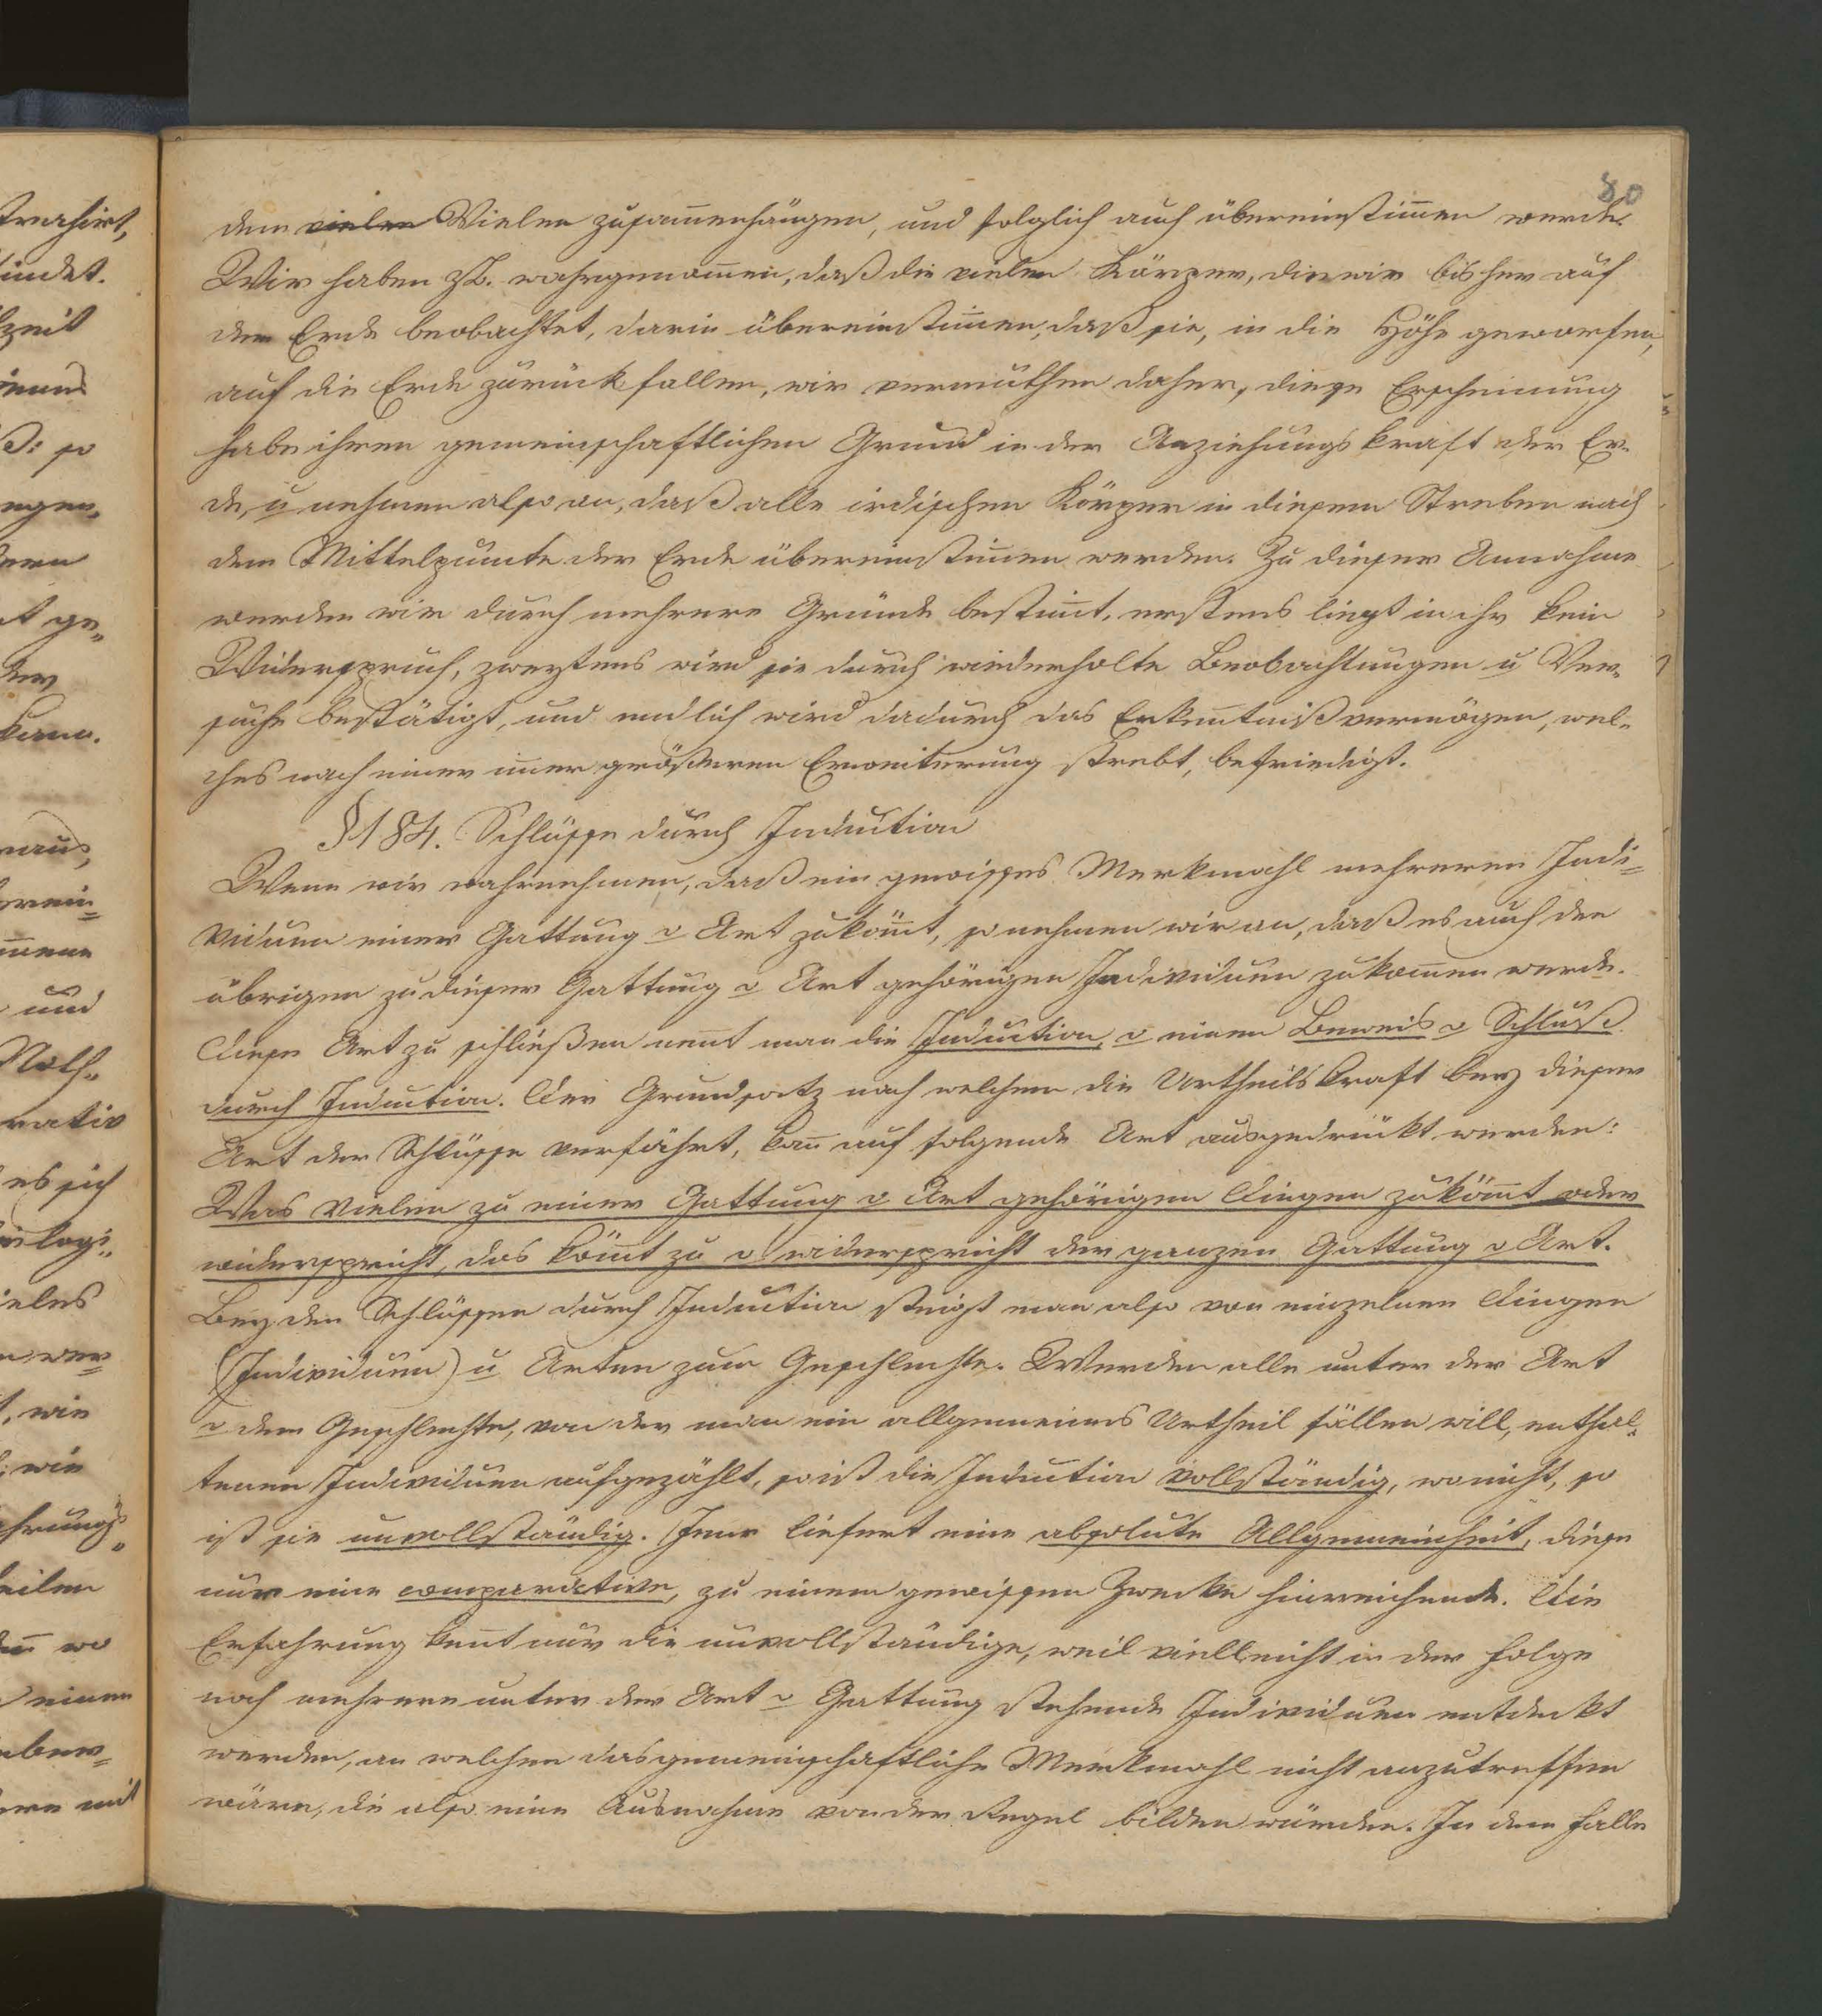 80
dem vielen Vielen zusam̅enhängen, und folglich auch übereinstim̅en werde.
Wir haben z.B. wahrgenom̅en, daß die vielen Körper, die wir bisher auf
der Erde beobachtet, darin übereinstim̅en, daß sie, in die Höhe geworfen,
auf die Erde zurückfallen, wir vermuthen daher, diese Erscheinung
habe ihren gemeinschaftlichen Grund in der Anziehungskraft der Er-
de, u nehmen also an, daß alle irdischen Körper in diesem Streben nach
dem Mittelpuncte der Erde übereinstim̅en werden. Zu dieser Annahme
werden wir durch mehrere Gründe bestim̅t, erstens liegt in ihr kein
Widerspruch, zweytens wird sie durch wiederholte Beobachtungen u Ver-
suche bestätigt, und endlich wird dadurch das Erken̅tnißvermögen, wel-
ches nach einer im̅er größeren Erweiterung strebt, befriedigt.
§184. Schlüsse durch Induction
Wenn wir wahrnehmen, daß ein gewisses Merkmahl mehreren Indi=
viduen einer Gattung o Art zuköm̅t, so nehmen wir an, daß es auch den
übrigen zu dieser Gattung o Art gehörigen Individuen zukom̅en werde.
Diese Art zu schließen nen̅t man die Induction, o einen Beweis o Schluß
durch Induction. Der Grundsatz nach welchem die Urtheilskraft bey dieser
Art der Schlüsse verfährt, kan̅ auf folgende Art ausgedrückt werden:
Was vielen zu einer Gattung o Art gehörigen Dingen zuköm̅t oder
widerspricht, das köm̅t zu o widerspricht der ganzen Gattung o Art.
Bey den Schlüssen durch Induction steigt man also von einzelnen Dingen
(Individuen) u Arten zum Geschlechte. Werden alle unter der Art
o dem Geschlechte, von der man ein allgemeines Urtheil fällen will, enthal-
tenen Individuen aufgezählt, so ist die Induction vollständig, wo nicht, so
ist sie unvollständig. Jene liefert eine absolute Allgemeinheit, diese
nur eine comparative, zu einem gewissen Zwecke hinreichende. Die
Erfahrung ken̅t nur die unvollständige, weil vielleicht in der Folge
noch mehrere unter der Art o Gattung stehende Individuen entdeckt
werden, an welchen das gemeinschaftliche Merkmahl nicht anzutreffen
wäre, die also eine Ausnahme von der Regel bilden würden. In dem Falle